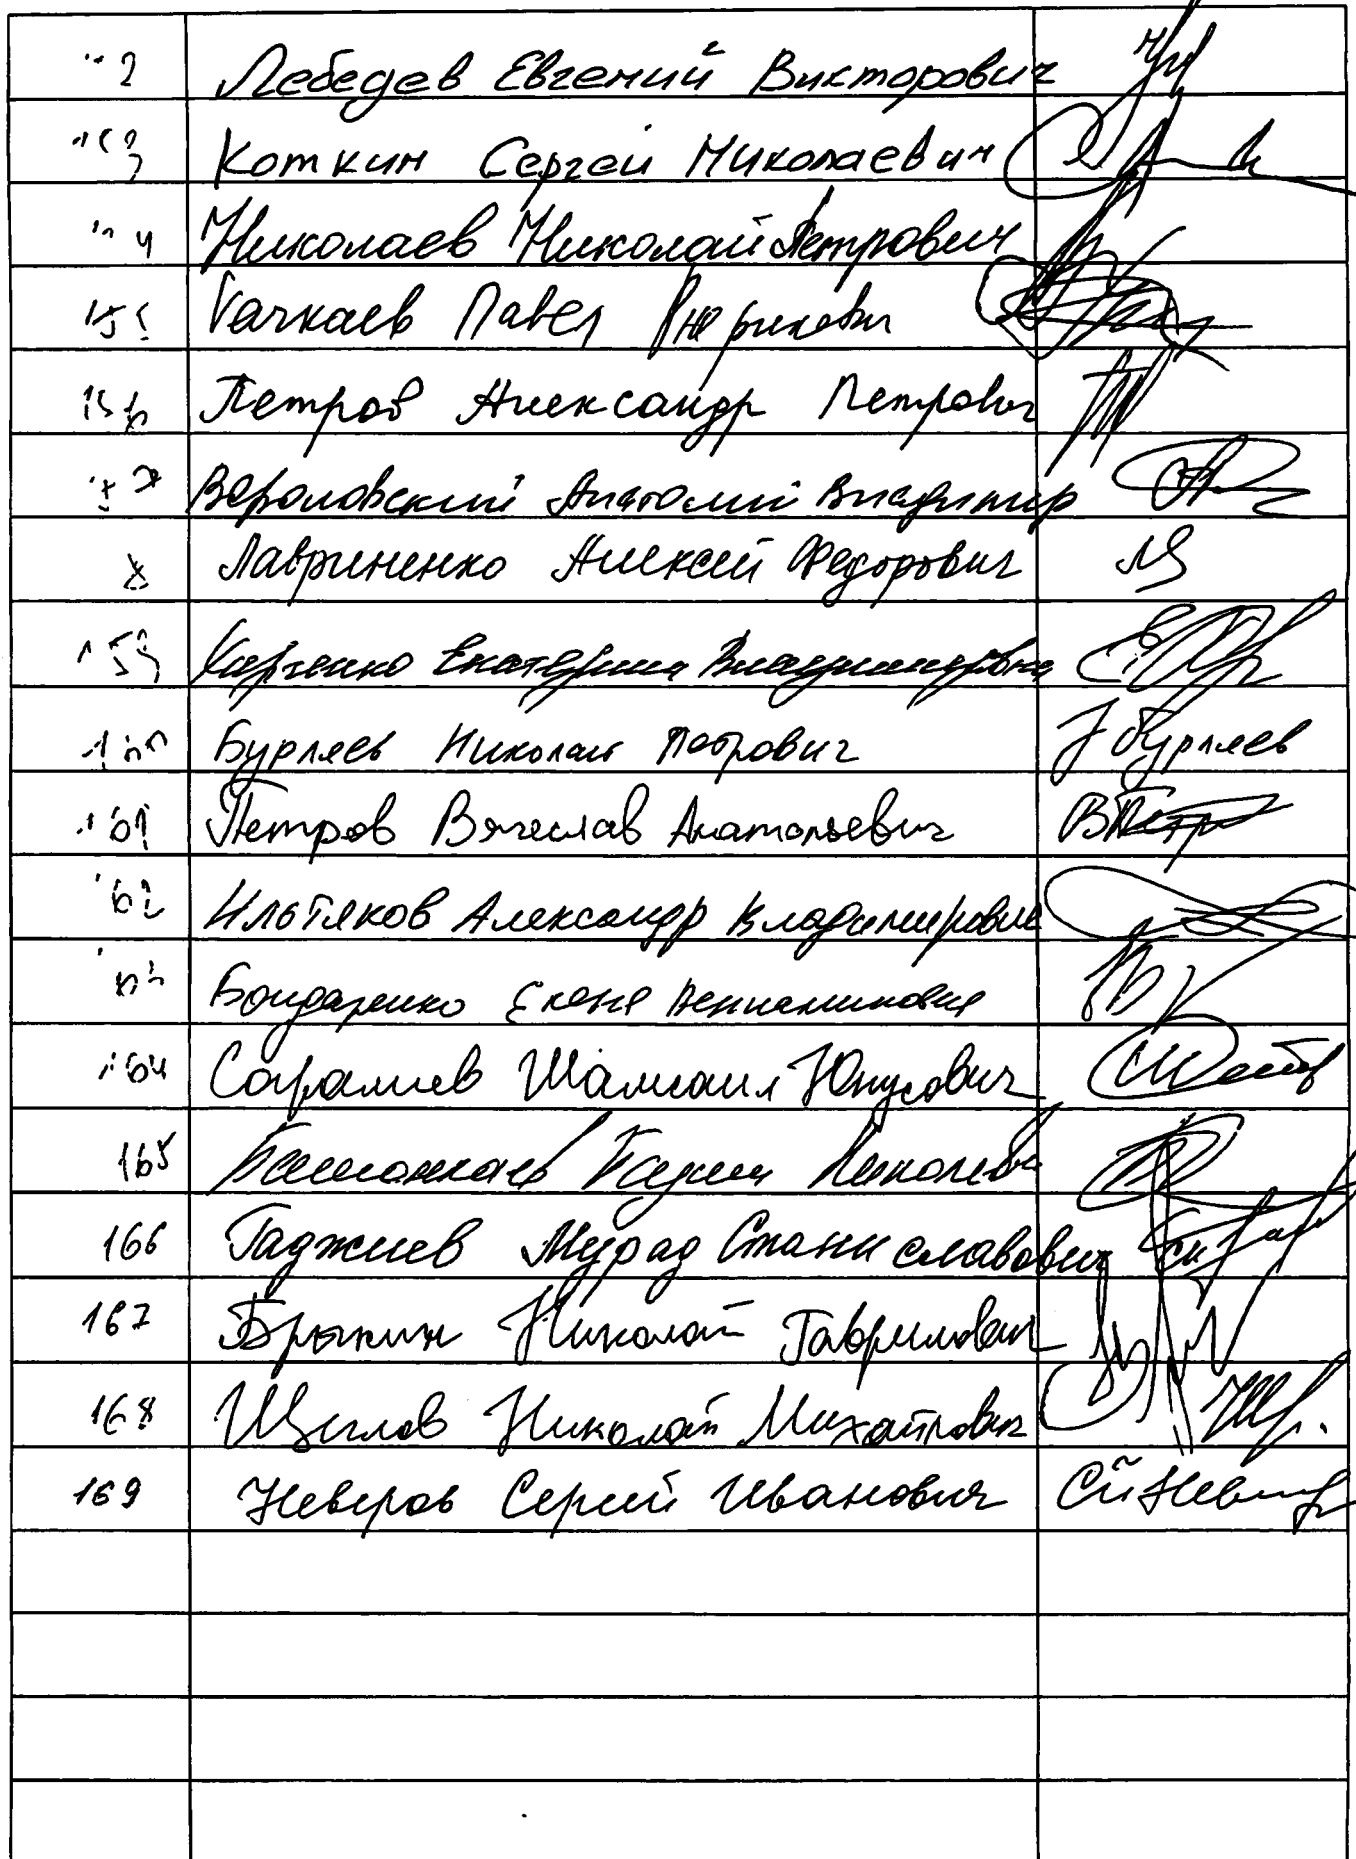 Лебедев Евгений Викторович
Коткин Сергей Николаевич
Николаев Николай Петрович
Качкаев Павел Рюрикович
156 Петров Александр Петрович
Анатолий Владимир
Лавриненко Алексей Федорович
159 Харченко Екатерина Владимировна
160 Бурляев Николай Петрович Бурляев
161 Петров Вячеслав Анатольевич
162 Ильтяков Александр Владимирович
Бондаренко Елена Вениаминовна
164 Саралиев Шамсаил Юнусович
165
166 Гаджиев Мурад Станиславович
167 Брыкин Николай Гаврилович
168 Щеглов Николай Михайлович
169 Неверов Сергей Иванович